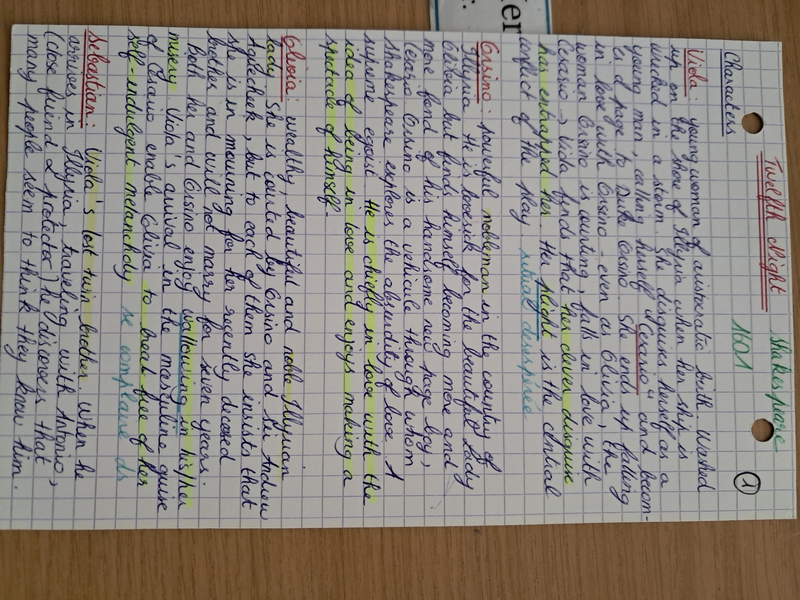 Twelfth Night Shakespeare
1601
1
Characters
Viola: young woman of aristocratic birth. Washed
up on the shore of Illyria when her ship is
wrecked in a storm. She disguises herself as a
young man, calling himself "Cesario" and becom-
is a page to Duke Orsino. She ends up falling
in love with Orsino - even as Olivia, the
woman Orsino is courting, falls in love with
Cesario → Viola finds that her clever disguise
has entrapped her. Her plight is the central
conflict of the play situat° désespérée
Orsino: powerful nobleman in the country of
Illyria He is lovesick for the beautiful Lady
Olivia but finds himself becoming more and
more fond of his handsome new page boy,
Cesario Orsino is a vehicle through whom
Shakespeare explores the absurdity of love. A
supreme egoist He is chiefly in love with the
idea of being in love and enjoys making a
spectacle of himself.
Olivia: wealthy beautiful and noble Illyrian
lady She is courted by Orsino and Sir Andrew
Aguecheek, but to each of them she insists that
she is in mourning for her recently deceased
brother and will not marry for seven years.
Both her and Orsino enjoy wallowing in his/her
misery Viola's arrival in the masculine guise
of Cesario enable Olivia to break free of her
self-indulgent melancholy se complaire ds
Sebastian: Viola's lost twin brother. When he
arrives in Illyria, traveling with Antonio,
(close friend & protector) he discovers that
many people seem to think they know him.
ter